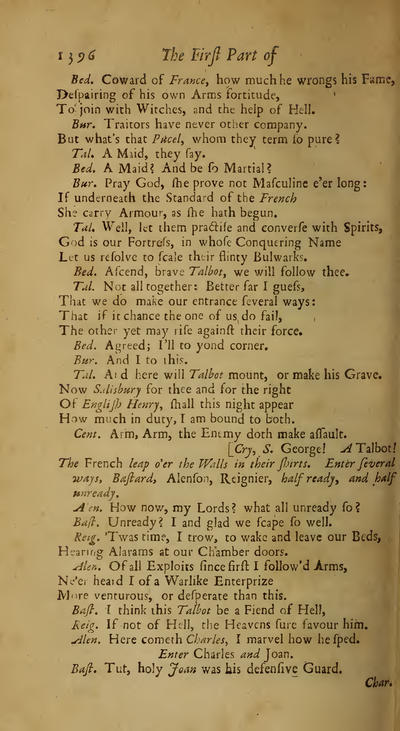 1396 The Firſt Part of
Bed. Coward of France, how much he wrongs his Fame,
Deſpairing of his own Arms fortitude,
To join with Witches, and the help of Hell.
Bur. Traitors have never other company.
But what's that Pucel, whom they term ſo pure?
Tal. A Maid, they ſay.
Bed. A Maid? And be ſo Martial?
Bur. Pray God, ſhe prove not Maſculine e'er long:
If underneath the Standard of the French
She carry Armour, as ſhe hath begun.
Tal. Well, let them practiſe and converſe with Spirits,
God is our Fortreſs, in whoſe Conquering Name
Let us reſolve to ſcale their flinty Bulwarks.
Bed. Aſcend, brave Talbot, we will follow thee.
Tal. Not all together: Better far I gueſs,
That we do make our entrance ſeveral ways:
That if it chance the one of us do fail,
The other yet may riſe againſt their force.
Bed. Agreed; I'll to yond corner.
Bur. And I to this.
Tal. And here will Talbot mount, or make his Grave.
Now Salisbury for thee and for the right
Of Engliſh Henry, ſhall this night appear
How much in duty, I am bound to both.
Cent. Arm, Arm, the Enemy doth make aſſault.
[Cry, S. George! A Talbot!
The French leap o'er the Walls in their ſhirts. Enter ſeveral
ways, Baſtard, Alenſon, Reignier, half ready, and half
unready.
Alen. How now, my Lords? what all unready ſo?
Baſt. Unready? I and glad we ſcape ſo well.
Reig. 'Twas time, I trow, to wake and leave our Beds,
Hearing Alarams at our Chamber doors.
Alen. Of all Exploits ſince firſt I follow'd Arms,
Ne'er heard I of a Warlike Enterprize
More venturous, or deſperate than this.
Baſt. I think this Talbot be a Fiend of Hell,
Reig. If not of Hell, the Heavens ſure favour him.
Alen. Here cometh Charles, I marvel how he ſped.
Enter Charles and Joan.
Baſt. Tut, holy Joan was his defenſive Guard.
Char.